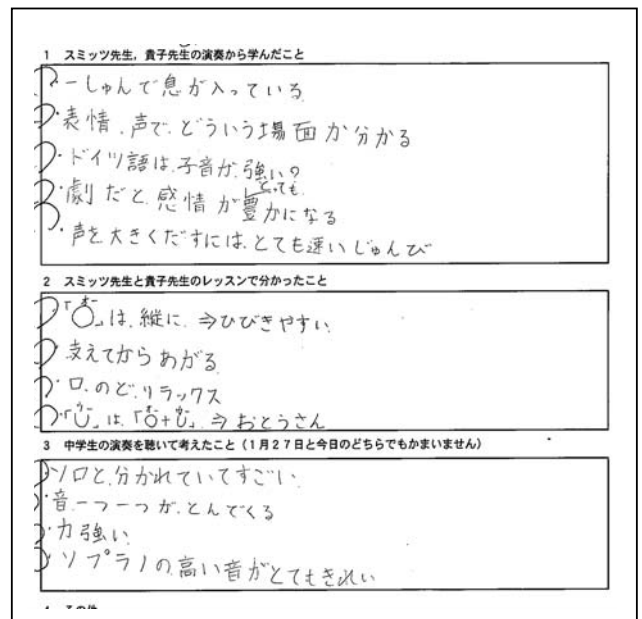 1 スミッツ先生，貴子先生の演奏から学んだこと
・一しゅんで息が入っている
・表情、声で、どういう場面か分かる
・ドイツ語は、子音が、強い？
・劇だと、感情がとっても豊かになる
・声を大きくだすには、とても速いじゅんび
2 スミッツ先生と貴子先生のレッスンで分かったこと
・「お」は、縦に、⇒ひびきやすい
・支えてからあがる
・口、のど、リラックス
・は、⇒おとうさん
3 中学生の演奏を聴いて考えたこと（1月27日と今日のどちらでもかまいません）
・ソロと、分かれていてすごい
・音一つ一つが、とんでくる
・力強い
・ソプラノの高い音がとてもきれい